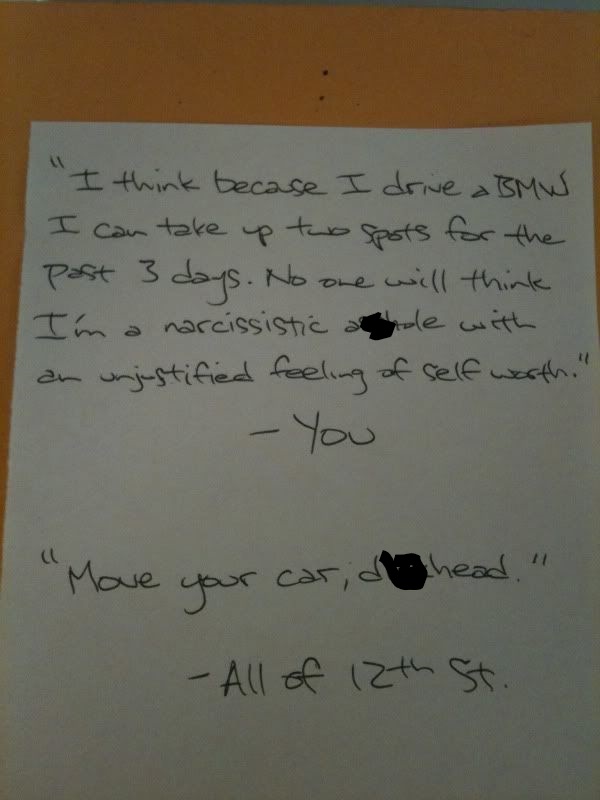 "I think becase I drive a BMW
I can take up two spots for the
past 3 days. No one will think
I'm a narcissistic with
an unjustified feeling of self worth."
- You
"Move your car,
- All of 12th St.